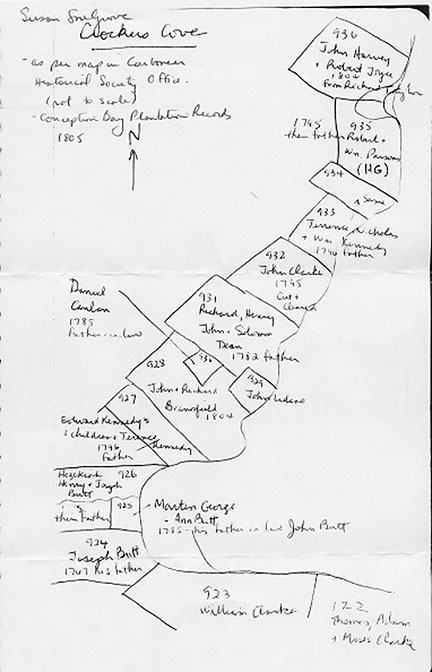 Susan Snelgrove
Clockers Cove
- as per map in Carbonear
Historical Society Office.
(not to scale)
- Conception Bay Plantation Records
1805
N
936
John Harvey
+ Robert Joyce
1804
From Richard
1795
their father
935
Robert +
Wm. Parsons
(HG)
934
" Same
933
Terrence Nicholas
+ Wm. Kennedy
1796 Father
932
John Clarke
1795
Cut +
Cleared
931
Richard, Henry
John + Solomon
Dean
1782 Father
Daniel
Canlan
1785
Father-in-law
930
929
John Ledane
928
John + Richard
Bransfield
1804
927
Edward Kennedy's
children + Terence
Kennedy
1796
Father
926
Hezekiah
Henry + Joseph
Butt
925
their Father
Martin George
- Ann Butt
1785 - his father in law John Butt
924
Joseph Butt
1767 his father
923
William Clarke
122
Thomas, Adam
+ Moses Clarke